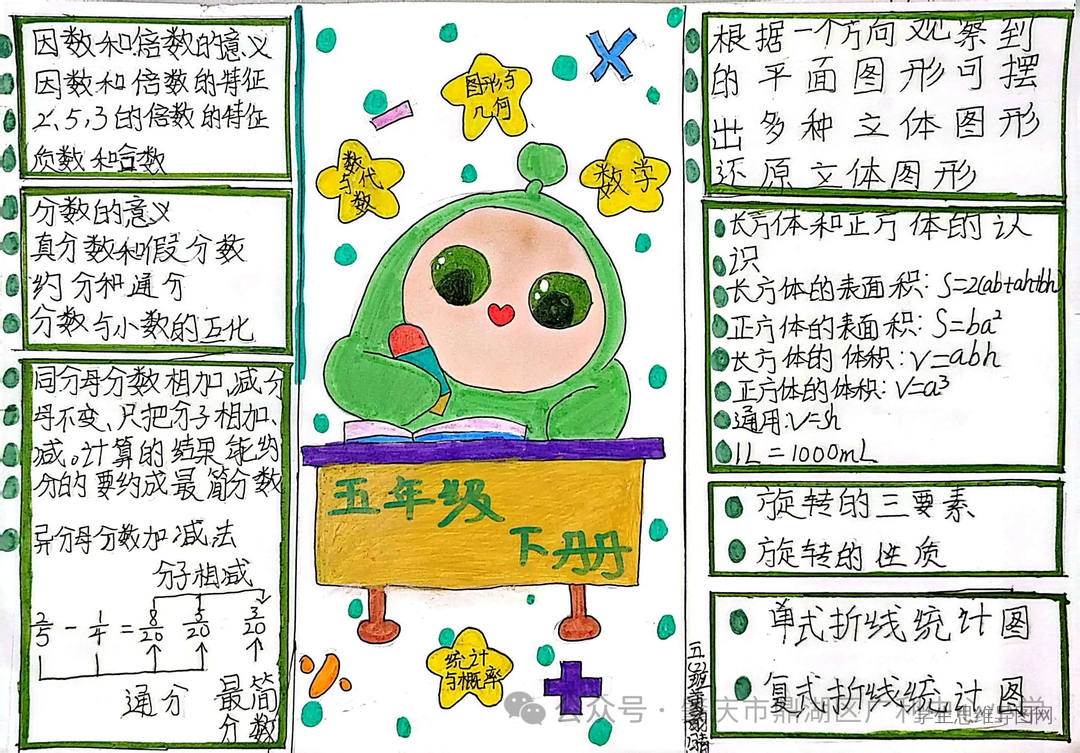 因数和倍数的意义
因数和倍数的特征
2,5,3的倍数的特征
质数和合数
分数的意义
真分数和假分数
约分和通分
分数与小数的互化
同分母分数相加、减分
母不变、只把分子相加、
减。计算的结果能约
分的要约成最简分数
异分母分数加减法
分子相减
2/5 - 1/4 = 8/20 5/20 3/20
通分
最简
分数
图形与
几何
数与代数
数学
五年级
下册
统计
与概率
根据一个方向观察到
的平面图形可摆
出多种立体图形
还原立体图形
长方体和正方体的认
识
长方体的表面积:S=2(ab+ah+bh)
正方体的表面积:S=6a²
长方体的体积:V=abh
正方体的体积:V=a³
通用:V=sh
1L=1000mL
旋转的三要素
旋转的性质
单式折线统计图
复式折线统计图
学生思维导图网